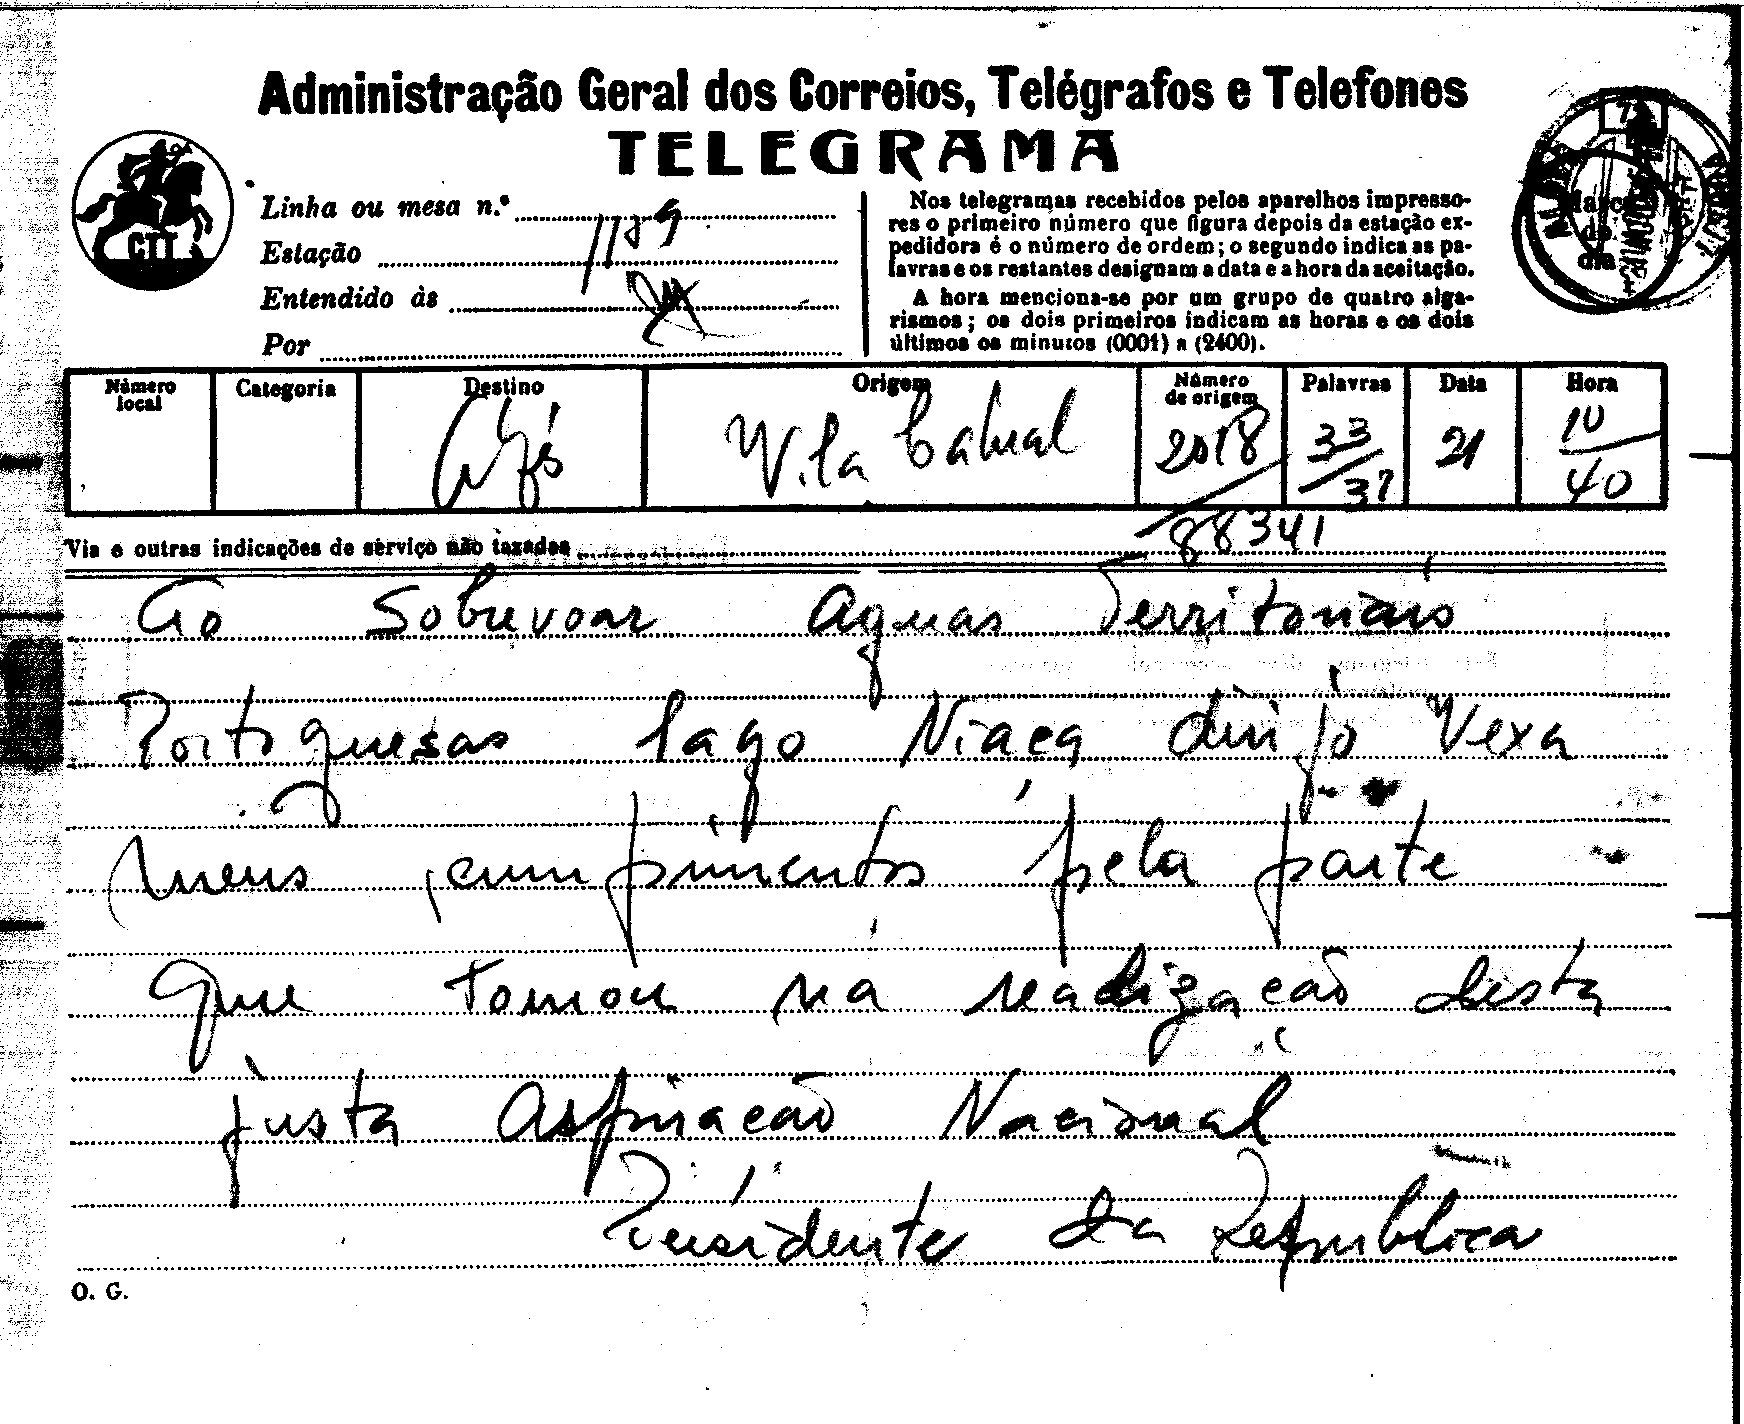 Administração Geral dos Correios, Telégrafos e Telefones
TELEGRAMA
CTT
Linha ou mesa n.º
Estação
Entendido às
Por
Nos telegramas recebidos pelos aparelhos impresso-
res o primeiro número que figura depois da estação ex-
pedidora é o número de ordem; o segundo indica as pa-
lavras e os restantes designam a data e a hora da aceitação.
A hora menciona-se por um grupo de quatro alga-
rismos; os dois primeiros indicam as horas e os dois
últimos os minutos (0001) a (2400).
Marca
do
dia
Número local Categoria Destino Origem Número de origem Palavras Data Hora
Vila Cabral 2018 33/37 21 10/40
88341
Via e outras indicações de serviço não taxadas
Ao Sobrevoar Aguas Territoriais
Portoguesas lago Niaça dirijo Vexa
meus cumprimentos pela parte
que tomou na realização desta
justa Aspiração Nacional
Presidente da Republica
O. G.